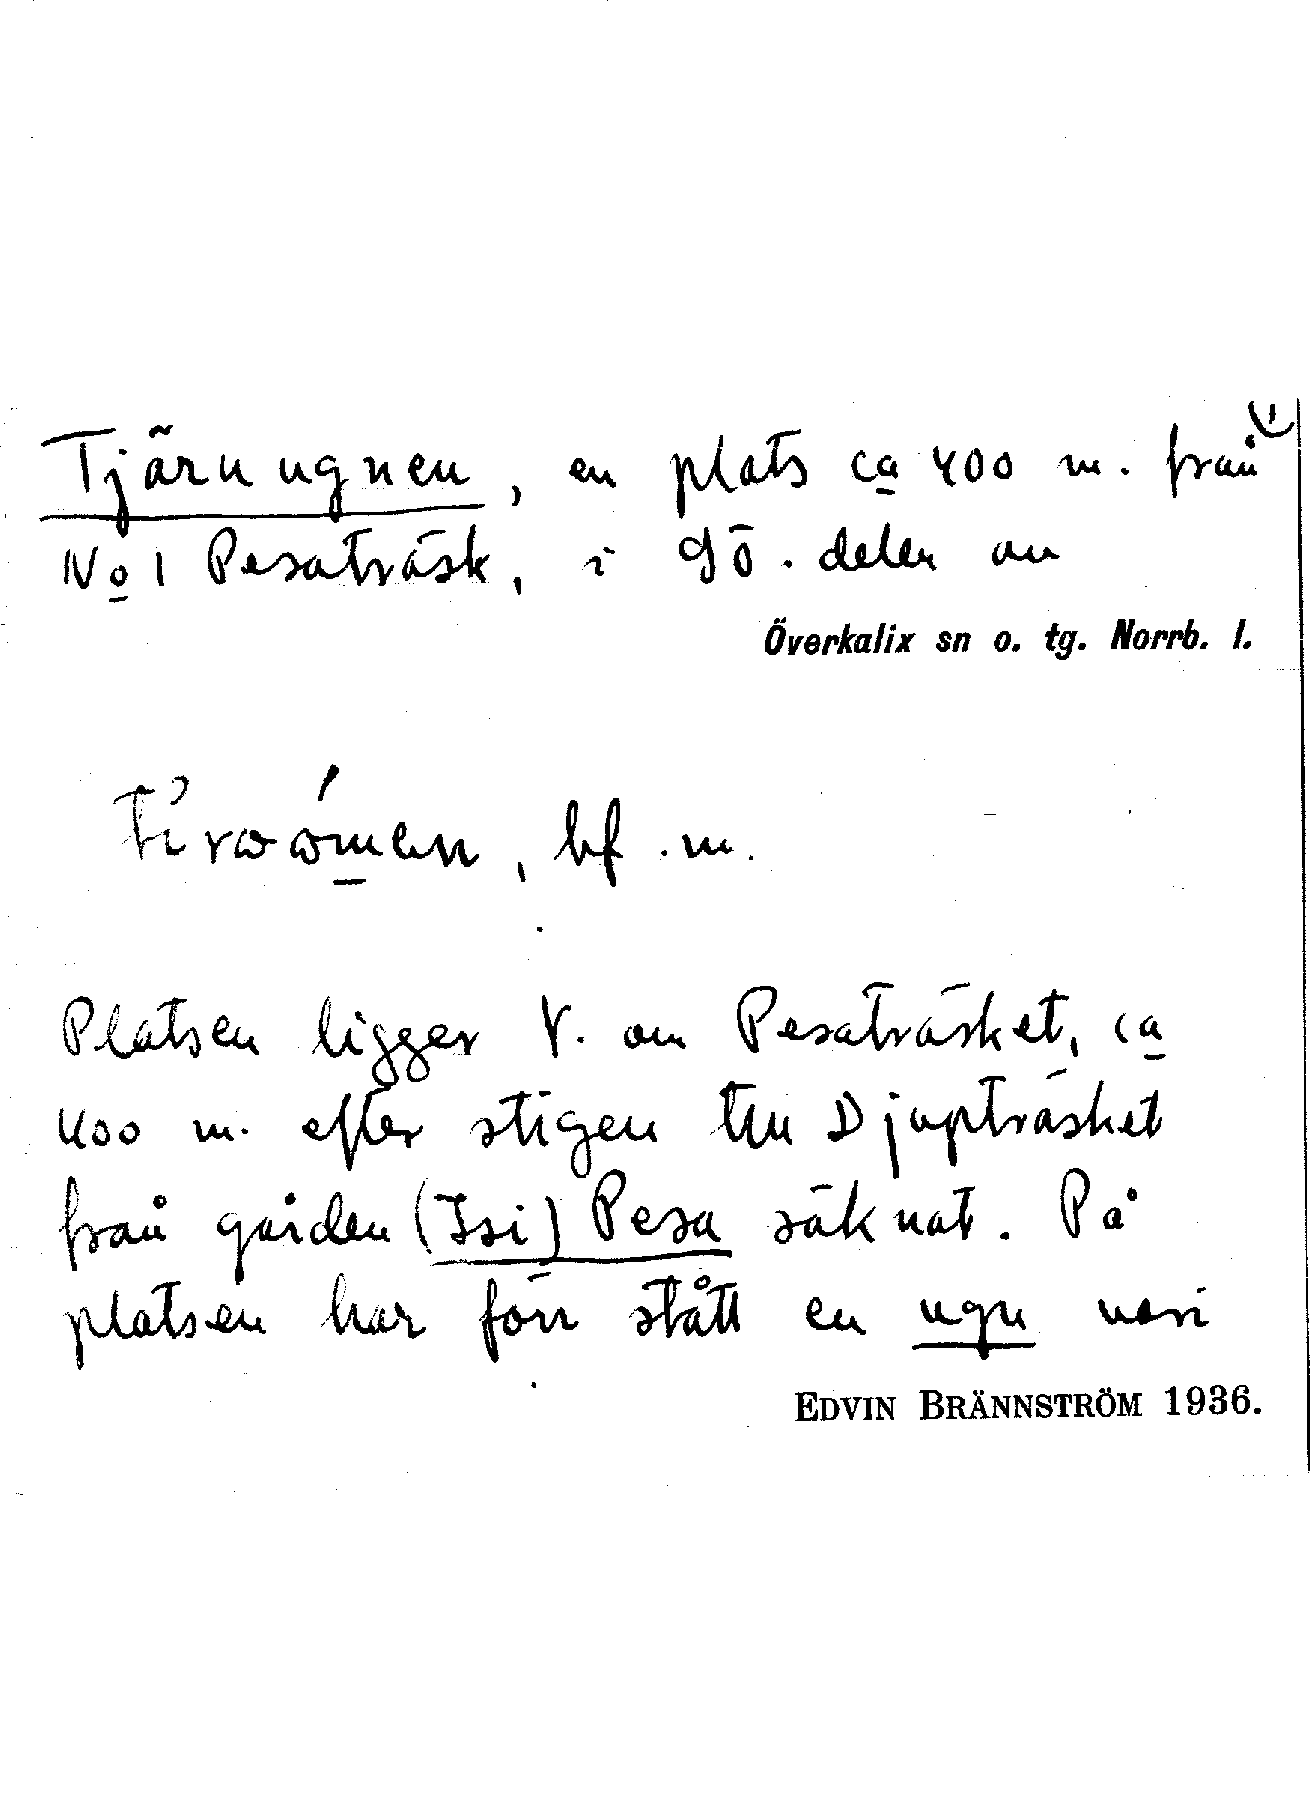 1)
Tjärnugnen, en plats ca 400 m. från
No 1 Pesaträsk, i sö. delen av
Överkalix sn o. tg. Norrb. l.
bf. m.
Platsen ligger V. om Pesaträsket, ca
400 m. efter stigen till Djupträsket
från gården (Isi) Pesa räknat. På
platsen har förr stått en ugn vari
EDVIN BRÄNNSTRÖM 1936.